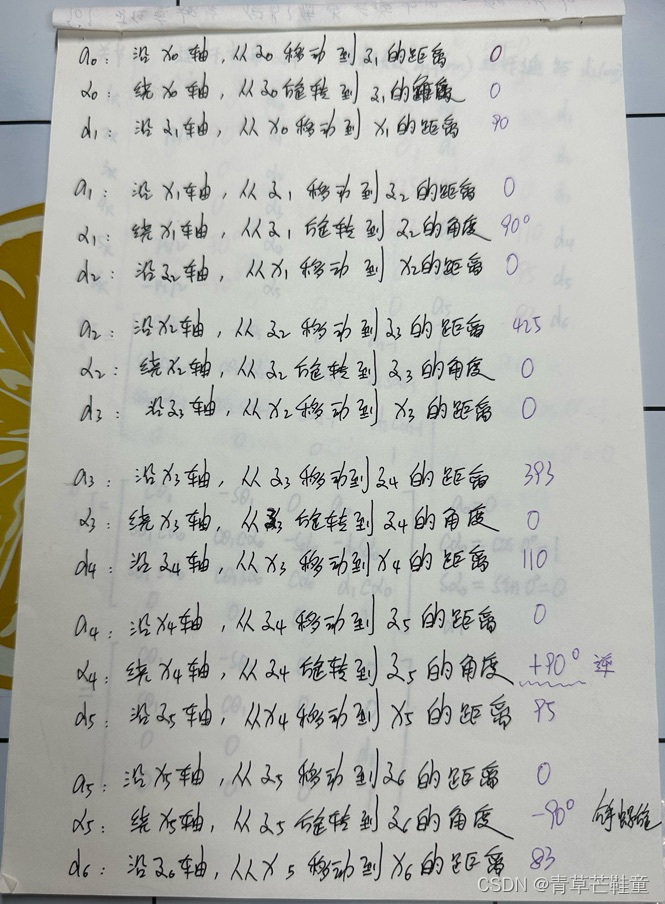 a₀：沿x₀轴，从z₀移动到z₁的距离 0
α₀：绕x₀轴，从z₀旋转到z₁的角度 0
d₁：沿z₁轴，从x₀移动到x₁的距离 90
a₁：沿x₁轴，从z₁移动到z₂的距离 0
α₁：绕x₁轴，从z₁旋转到z₂的角度 90°
d₂：沿z₂轴，从x₁移动到x₂的距离 0
a₂：沿x₂轴，从z₂移动到z₃的距离 425
α₂：绕x₂轴，从z₂旋转到z₃的角度 0
d₃：沿z₃轴，从x₂移动到x₃的距离 0
a₃：沿x₃轴，从z₃移动到z₄的距离 393
α₃：绕x₃轴，从z₃旋转到z₄的角度 0
d₄：沿z₄轴，从x₃移动到x₄的距离 110
a₄：沿x₄轴，从z₄移动到z₅的距离 0
α₄：绕x₄轴，从z₄旋转到z₅的角度 +90° 逆
d₅：沿z₅轴，从x₄移动到x₅的距离 95
a₅：沿x₅轴，从z₅移动到z₆的距离 0
α₅：绕x₅轴，从z₅旋转到z₆的角度 -90°
d₆：沿z₆轴，从x₅移动到x₆的距离 83
CSDN @青草芒鞋童